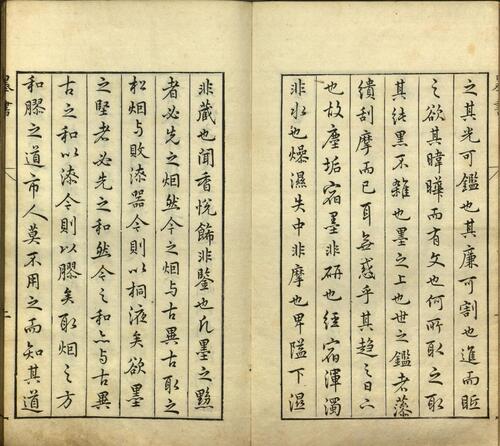 之其光可鑑也其廉可割也進而眂
之欲其暐曄而有文也何所取之取
其純黑不雜也墨之上也世之鑑者藻
繢刮摩而已耳無惑乎其趨之日六
也故塵垢宿墨非研也經宿渾濁
非水也燥濕失中非摩也卑隘下濕
非藏也聞香悅飾非鑒也凡墨之黝
者必先之烟然今之烟与古異古取之
松烟与敗漆器今則以桐液矣欲墨
之堅者必先之和然今之和亦与古異
古之和以漆今則以膠矣取烟之方
和膠之道市人莫不用之而知其道
墨書